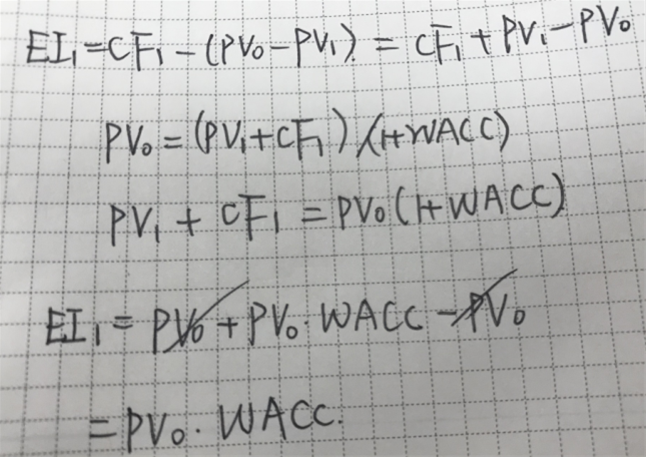 EI₁=CF₁-(PV₀-PV₁) = CF₁+PV₁-PV₀
PV₀=(PV₁+CF₁)/(1+WACC)
PV₁+CF₁=PV₀(1+WACC)
EI₁=PV₀+PV₀·WACC-PV₀
=PV₀·WACC.